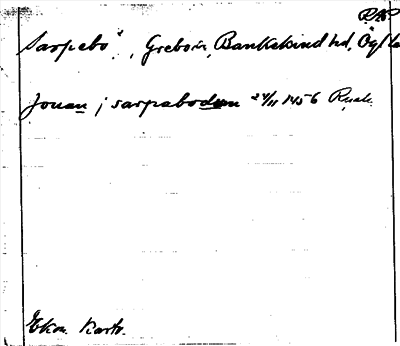 RAP
Sarpebo, Grebo sn, Bankekind hd, Ögl
Jouan j sarpabodum 24/11 1456 Rual.
Ekon. Kart.